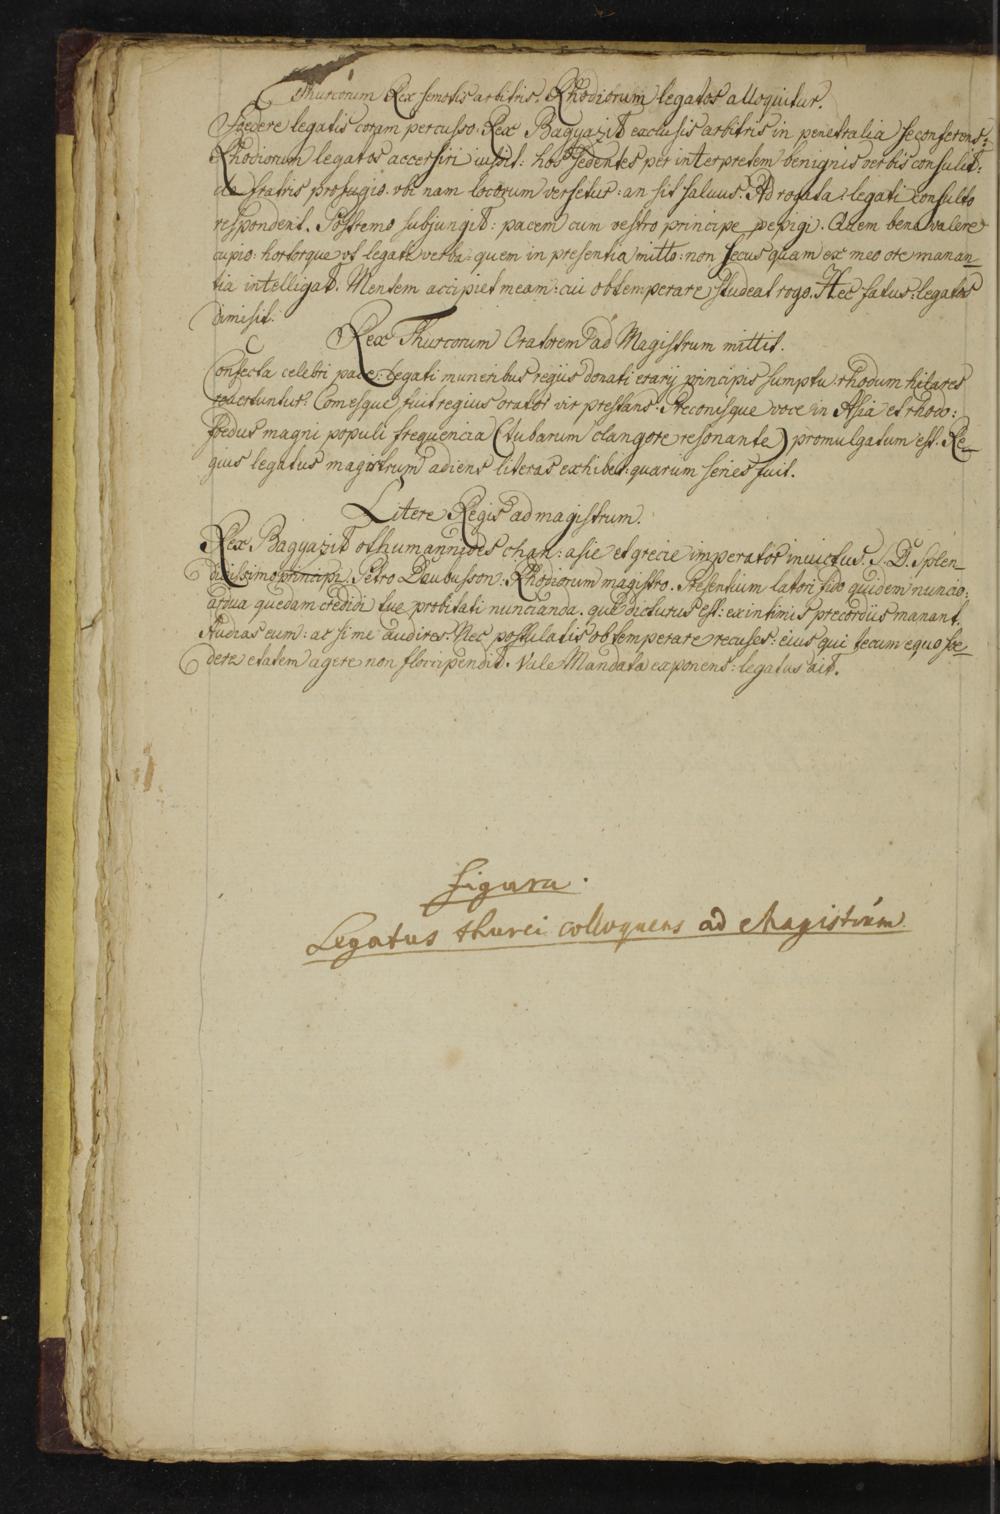 Thurcorum Rex semotis arbitris. Rhodiorum legatos alloquitur.
Foedere legatis coram percusso. Rex Bagyazit exclusis arbitris in penetralia se conferens:
Rhodiorum legatos accersiri iussit: hos sedentes per interpretem benignis verbis consulit:
de fratris profugio. vbi nam locorum versetur: an sit saluus: Ad rogata: legati consulto
respondent. Postremo subjungit: pacem cum vestro principe pepigi. Quem bene valere
cupio: hortorque vt legati verba: quem in presentia mitto: non secus quam ex meo ore manan-
tia intelligat. Mentem accipiet meam: cui obtemperare studeat rogo. Hec fatus: legatos
dimisit.
Rex Thurcorum Oratorem ad Magistrum mittit.
Confecta celebri pace: legati muneribus regiis donati erarij principis sumptu: rhodum hilares
reuertuntur: Comesque fuit regius orator vir prestans. Preconisque voce in Asia et rhodo:
foedus magni populi frequencia (tubarum clangore resonante) promulgatum est. Re-
gius legatus magistrum adiens literas exhibet: quarum series fuit.
Litere Regis ad magistrum.
Rex Bagyazit othumannides chan: asie et grecie imperator inuictus. S. D. Splen
didissimo principi Petro Daubusson: Rhodiorum magistro. Presentium latori fido quidem nuncio:
ardua quedam credidi tue probitati nuncianda. que dicturus est: ex intimis precordiis manant.
Audias eum: ac si me audires. Nec postulatis obtemperare recuses: eius qui tecum equo foe-
dere etatem agere non floccipendit. Vale Mandata exponens: legatus ait.
figura.
Legatus thurci colloquens ad Magistrum